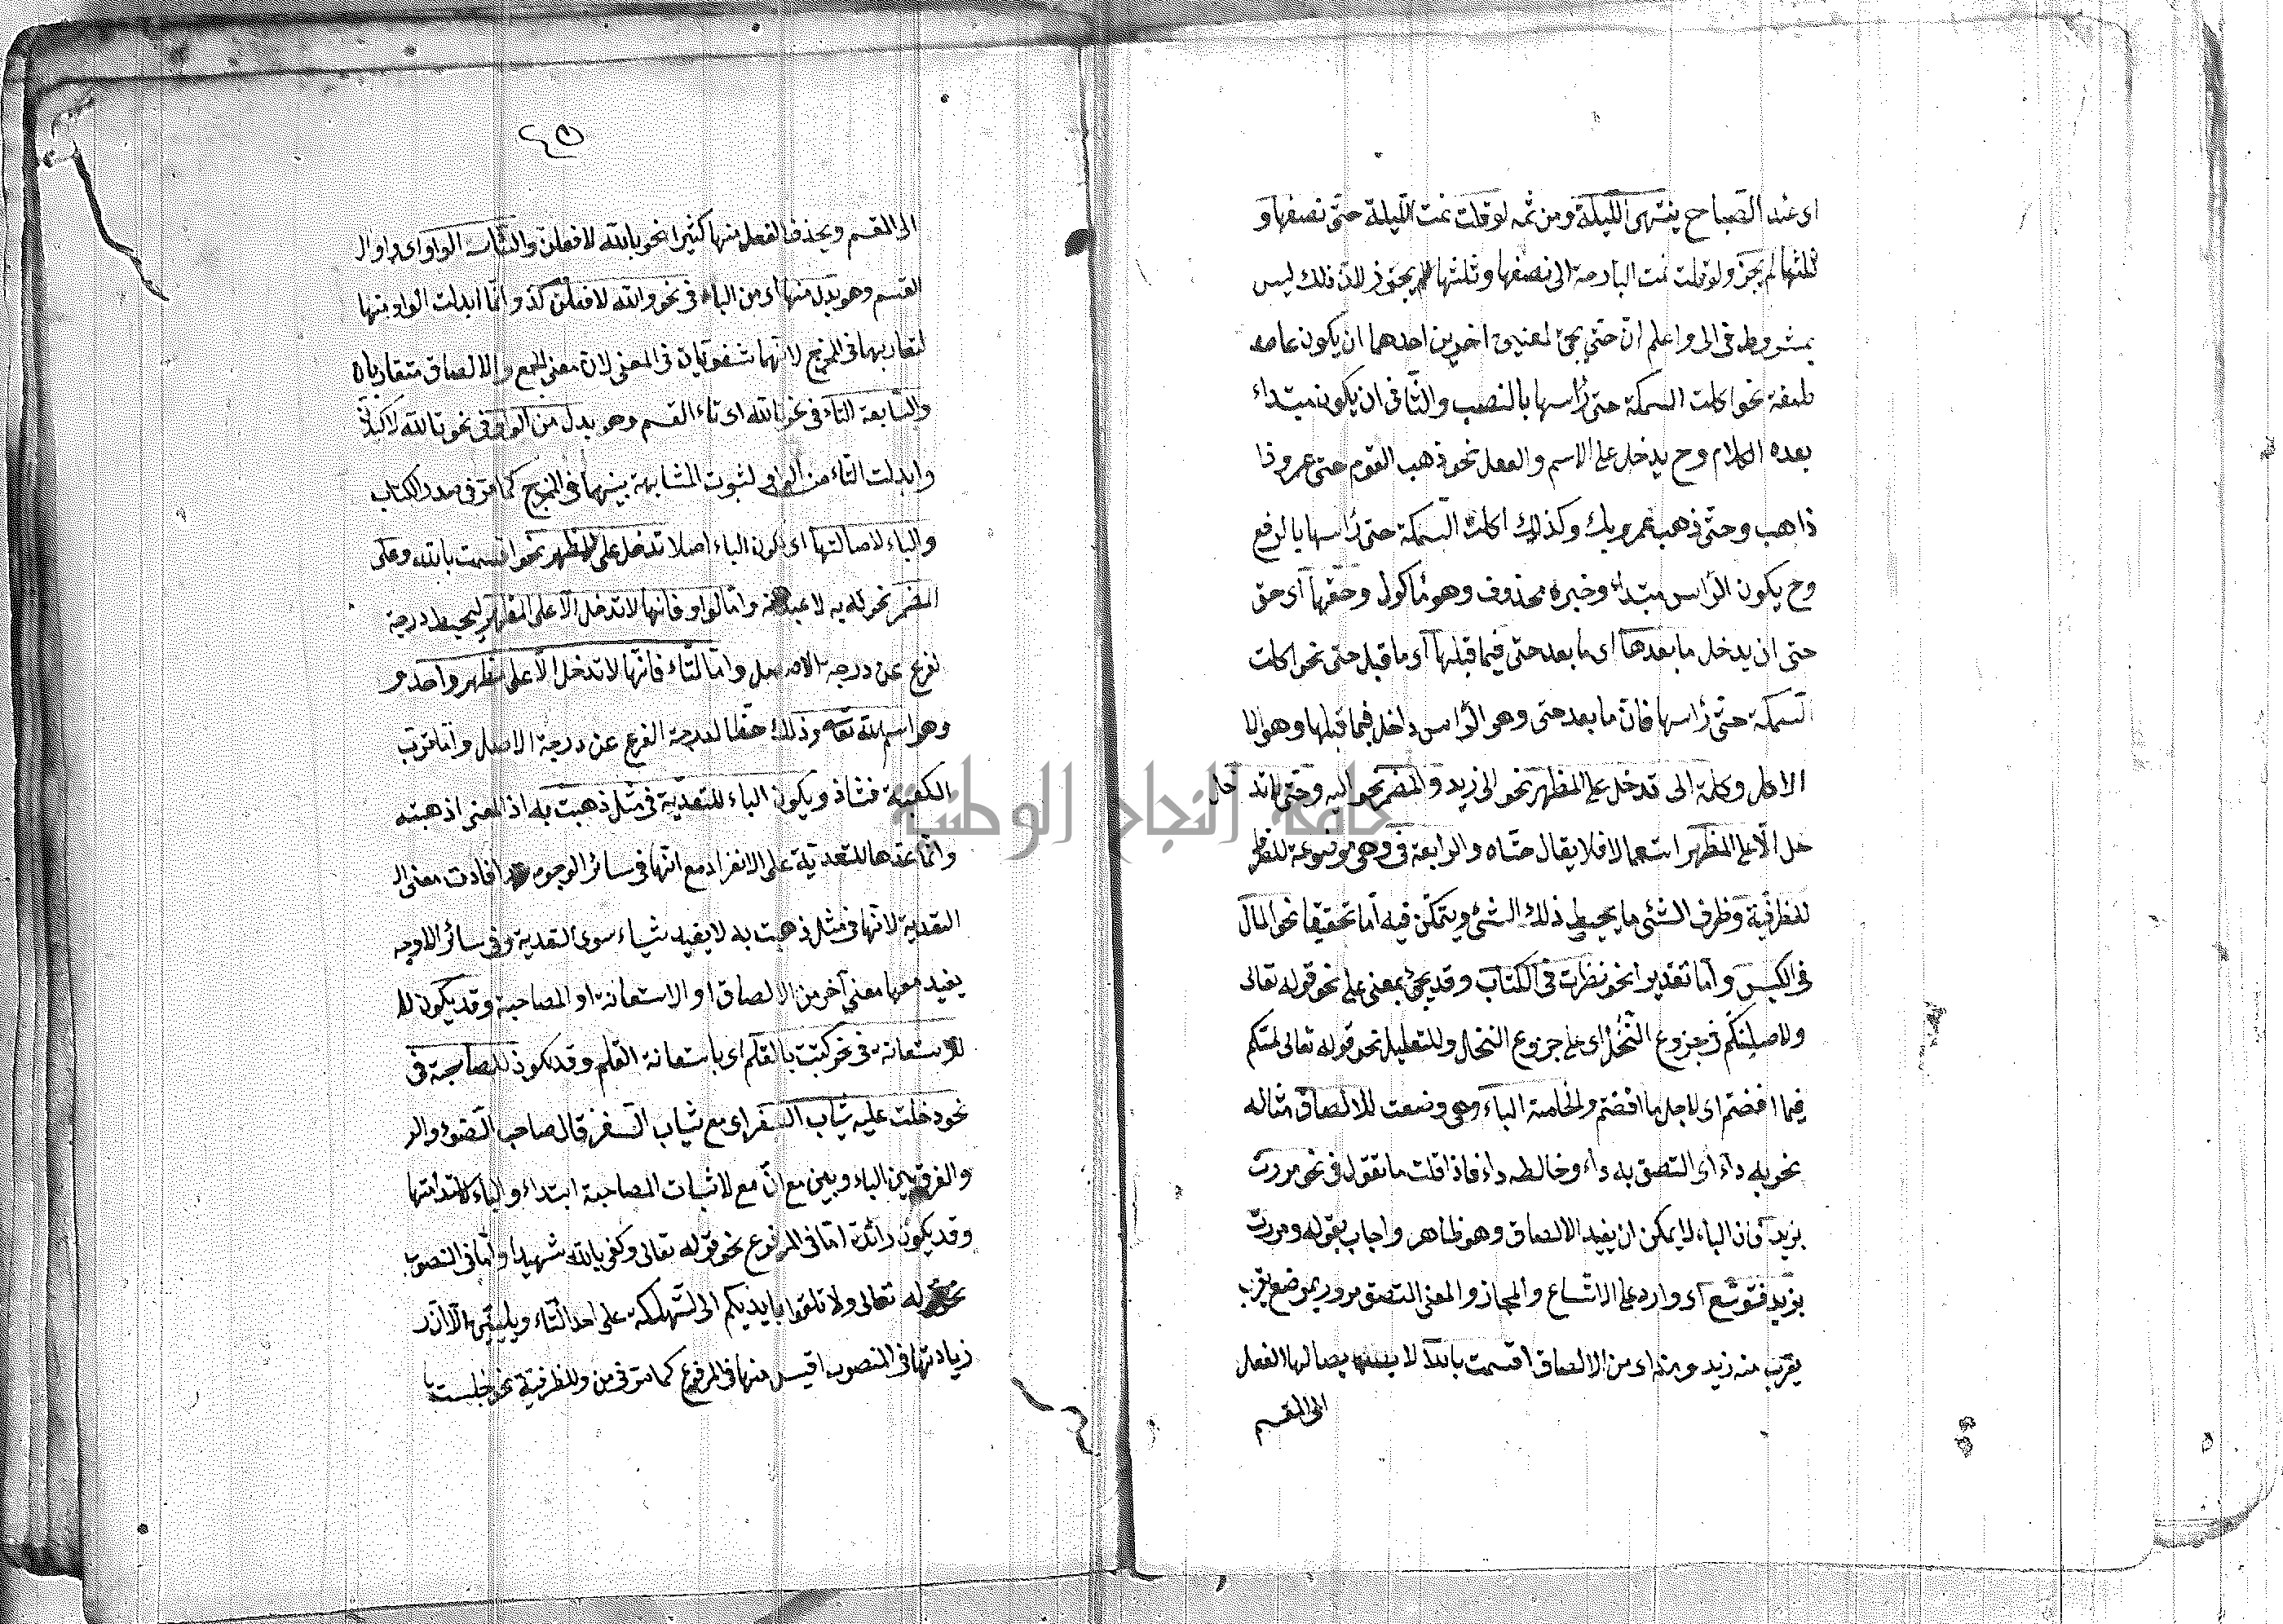 اى عند الصباح ينتهى الليلة ومن ثمه لو قلت نمت الليلة حتى نصفها و
ثلثها لم يجز ولو قلت نمت البارحة الى نصفها وثلثها يجوز لان ذلك ليس
بمشروط فى الى واعلم ان حتى يجئ لمعنيين اخرين احدهما ان يكون عاطفة
نحو اكلت السمكة حتى رأسها بالنصب والثانى ان يكون مبتداء
بعده الكلام وح يدخل على الاسم والفعل نحو ذهب القوم حتى عمرو ذا
ذاهب وحتى ذهب عمرو وكذلك اكلت السمكة حتى رأسها بالرفع
وح يكون الرأس مبتداء وخبره محذوف وهو مأكول وحقها اى حق
حتى ان يدخل ما بعدها اى ما بعد حتى فيما قبلها اى ما قبل حتى نحو اكلت
السمكة حتى رأسها فان ما بعد حتى وهو الرأس داخل فيما قبلها وهو الا
الاكل وكلمة الى قد تدخل على المظهر نحو الى زيد والمضمر نحو اليه وحتى لا تد خل
خل الا على المظهر استعمالا فلا يقال حتاه والرابعة فى وهى موضوعة للظر
للظرفية وظرف الشئ ما يحيط ذلك الشئ ويتمكن فيه اما تحقيقا نحو المال
فى الكيس واما تقديرا نحو نظرت فى الكتاب وقد يجئ بمعنى على نحو قوله تعالى
ولاصلبنكم فى جزوع النخل اى على جزوع النخل وللتعليل نحو قوله تعالى لمسكم
فيما افضتم اى لاجل ما افضتم والخامسة الباء وهى وضعت للالصاق مثاله
نحو به داء اى التصق به داء وخالطه داء فاذا قلت ما تقول فى نحو مررت
بزيد فان الباء لا يمكن ان يفيد الالصاق وهو ظاهر واجاب بقوله ومررت
بزيد فتوسع اى وارد على الاتساع والمجاز والمعنى التصق مرورى بموضع يقرب
يقرب منه زيد ومنه اى من الالصاق اقسمت بالله لا يصالها الفعل
الى المقسم
٤٥
الى المقسم ويحذف الفعل منها كثيرا نحو بالله لافعلن والسادس الواو اى واو ال
القسم وهو بدل منها اى من الباء فى نحو والله لافعلن كذ وانما ابدلت الواو منها
لتقاربهما فى المخرج لانهما شفويتان فى المعنى لان معنى الجمع والالصاق متقاربان
والسابعة التاء فى نحو تالله اى تاء القسم وهو بدل من الواو فى نحو تالله لاكيدن
وابدلت التاء من الواو لثبوت المشابهة بينهما فى المخرج كما مر فى صدر الكتاب
والباء لاصالتها اى لكون الباء اصلا تدخل على المظهر نحو اقسمت بالله وعلى
المضمر نحو به لاعبدنه واما الواو فانها لا تدخل الا على المظهر ليحيط درجة
الفرع عن درجة الاصل واما التاء فانها لا تدخل الا على مظهر واحد و
وهو اسم الله تعالى وذلك حطا لدرجة الفرع عن درجة الاصل واما ترب
الكعبة فشاذ ويكون الباء للتعدية فى مثل ذهبت به اذ المعنى اذهبته
وانما عدها للتعدية على الانفراد مع انها فى سائر الوجوه افادت معنى ال
التعدية لانها فى مثل ذهبت به لا يفيد شياء سوى التعدية وفى سائر الاوجه
يفيد معها معنى آخر من الالصاق او الاستعانة او المصاحبة وقد يكون للا
للاستعانة فى نحو كتبت بالقلم اى باستعانة القلم وقد يكون للمصاحبة فى
نحو دخلت عليه بثياب السفر اى مع ثياب السفر قال صاحب الضوء والر
والفرق بين الباء وبين مع ان مع لاثبات المصاحبة ابتداء والباء لاستدامتها
وقد يكون زائدة اما فى المرفوع نحو قوله تعالى وكفى بالله شهيدا واما فى المنصوب
نحو قوله تعالى ولا تلقوا بايديكم الى التهلكة على احد التاء ويلين الا ان
زيادتها فى المنصوب اقيس منها فى المرفوع كما مر فى من وللظرفية نحو جلست با
جامعة النجاح الوطنية